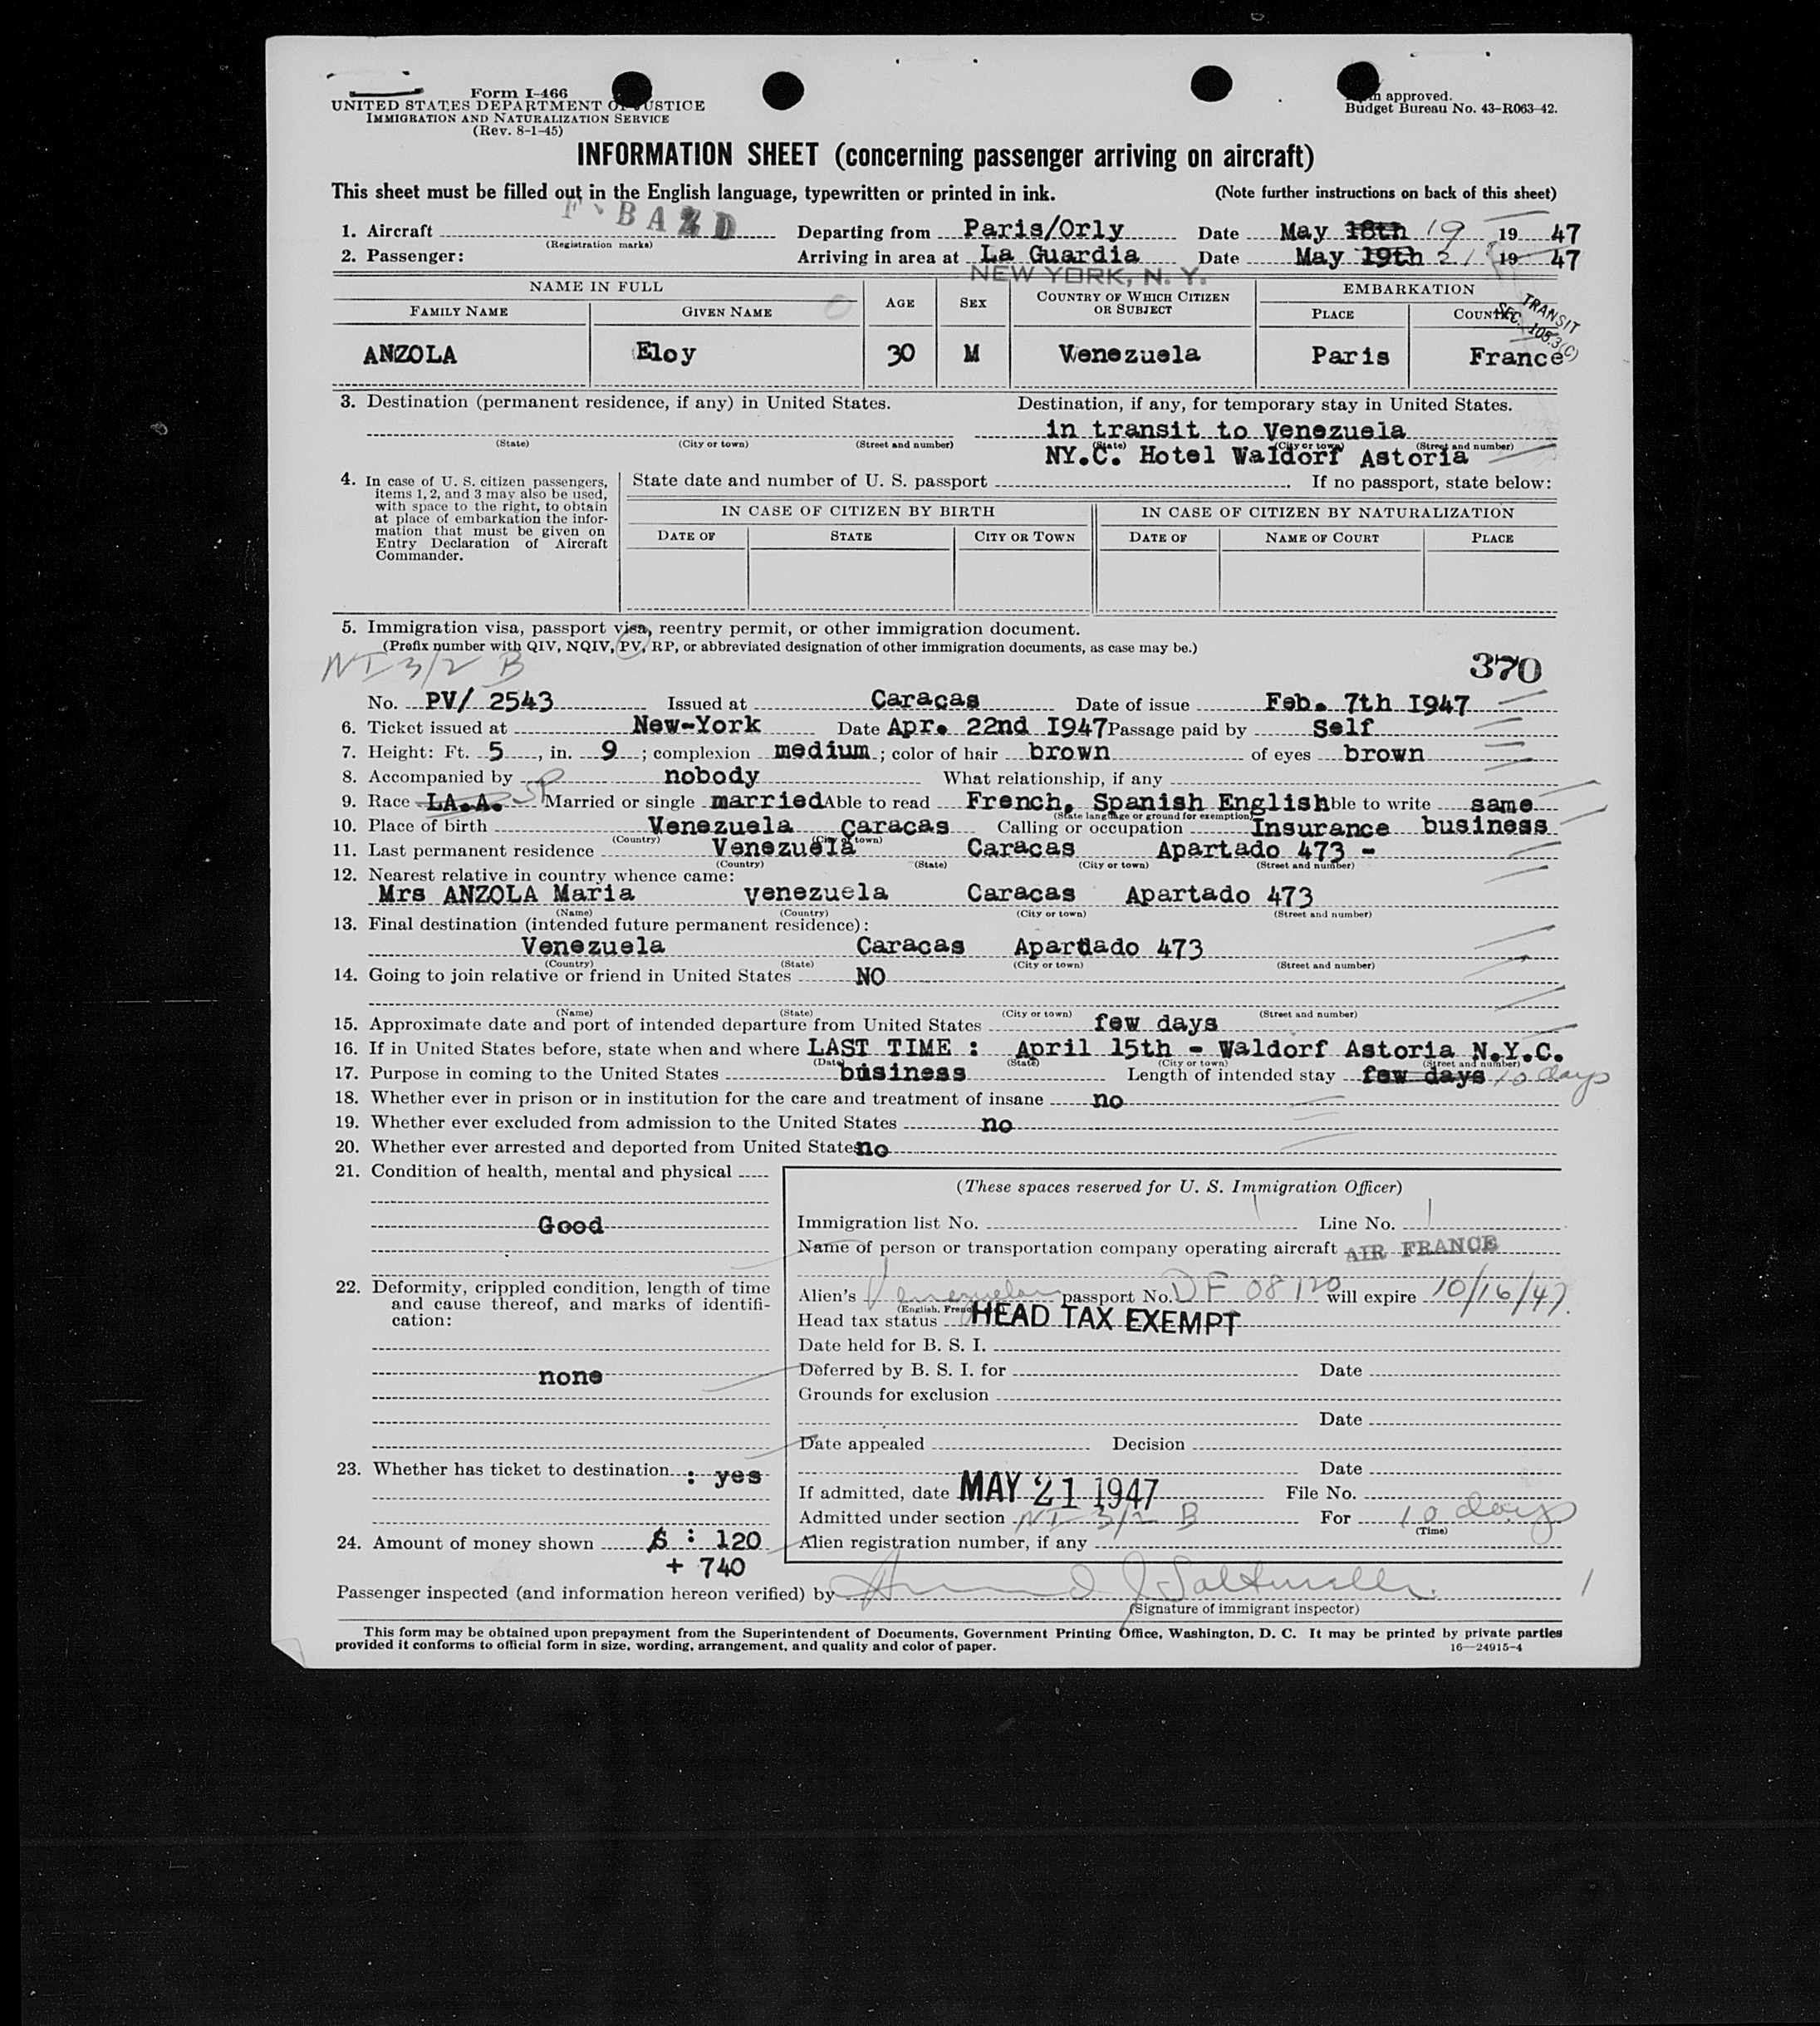 Form I-466
UNITED STATES DEPARTMENT OF JUSTICE
IMMIGRATION AND NATURALIZATION SERVICE
(Rev. 8-1-45)
approved.
Budget Bureau No. 43-R063-42.
INFORMATION SHEET (concerning passenger arriving on aircraft)
This sheet must be filled out in the English language, typewritten or printed in ink. (Note further instructions on back of this sheet)
1. Aircraft (Registration marks) Departing from Paris/Orly Date May 18th 19 19 47
2. Passenger: Arriving in area at La Guardia Date May 19th 21 19 47
NEW YORK, N. Y.
NAME IN FULL AGE SEX COUNTRY OF WHICH CITIZEN OR SUBJECT EMBARKATION
FAMILY NAME GIVEN NAME PLACE COUNTRY
TRANSIT
SEC. 105.3(C)
ANZOLA Eloy 30 M Venezuela Paris France
3. Destination (permanent residence, if any) in United States. Destination, if any, for temporary stay in United States.
in transit to Venezuela
(State) (City or town) (Street and number) (State) (City or town) (Street and number)
NY.C. Hotel Waldorf Astoria
4. In case of U. S. citizen passengers, items 1, 2, and 3 may also be used, with space to the right, to obtain at place of embarkation the information that must be given on Entry Declaration of Aircraft Commander.
State date and number of U. S. passport If no passport, state below:
IN CASE OF CITIZEN BY BIRTH IN CASE OF CITIZEN BY NATURALIZATION
DATE OF STATE CITY OR TOWN DATE OF NAME OF COURT PLACE
5. Immigration visa, passport visa, reentry permit, or other immigration document.
(Prefix number with QIV, NQIV, PV, RP, or abbreviated designation of other immigration documents, as case may be.)
NI 3/2 B 370
No. PV/ 2543 Issued at Caracas Date of issue Feb. 7th I947
6. Ticket issued at New-York Date Apr. 22nd I947 Passage paid by Self
7. Height: Ft. 5, in. 9; complexion medium; color of hair brown of eyes brown
8. Accompanied by nobody What relationship, if any
9. Race LA.A. SP Married or single married Able to read French, Spanish English ble to write same
(State language or ground for exemption)
10. Place of birth Venezuela Caracas Calling or occupation Insurance business
(Country) (City or town)
11. Last permanent residence Venezuela Caracas Apartado 473 -
(Country) (State) (City or town) (Street and number)
12. Nearest relative in country whence came:
Mrs ANZOLA Maria venezuela Caracas Apartado 473
(Name) (Country) (City or town) (Street and number)
13. Final destination (intended future permanent residence):
Venezuela Caracas Apardado 473
(Country) (State) (City or town) (Street and number)
14. Going to join relative or friend in United States NO
(Name) (State) (City or town) (Street and number)
15. Approximate date and port of intended departure from United States few days
16. If in United States before, state when and where LAST TIME : April 15th - Waldorf Astoria N.Y.C.
(Date) (State) (City or town) (Street and number)
17. Purpose in coming to the United States business Length of intended stay few days 10 days
18. Whether ever in prison or in institution for the care and treatment of insane no
19. Whether ever excluded from admission to the United States no
20. Whether ever arrested and deported from United States no
21. Condition of health, mental and physical
Good
22. Deformity, crippled condition, length of time and cause thereof, and marks of identification:
none
23. Whether has ticket to destination : yes
24. Amount of money shown $ : 120
+ 740
(These spaces reserved for U. S. Immigration Officer)
Immigration list No. 1 Line No. 1
Name of person or transportation company operating aircraft AIR FRANCE
Alien's Venezuelan passport No. DF 08120 will expire 10/16/47.
Head tax status HEAD TAX EXEMPT
Date held for B. S. I.
Deferred by B. S. I. for Date
Grounds for exclusion
Date
Date appealed Decision
Date
If admitted, date MAY 21 1947 File No.
Admitted under section NI 3/2 B For 10 days
(Time)
Alien registration number, if any
Passenger inspected (and information hereon verified) by
(Signature of immigrant inspector)
This form may be obtained upon prepayment from the Superintendent of Documents, Government Printing Office, Washington, D. C. It may be printed by private parties
provided it conforms to official form in size, wording, arrangement, and quality and color of paper. 16—24915-4